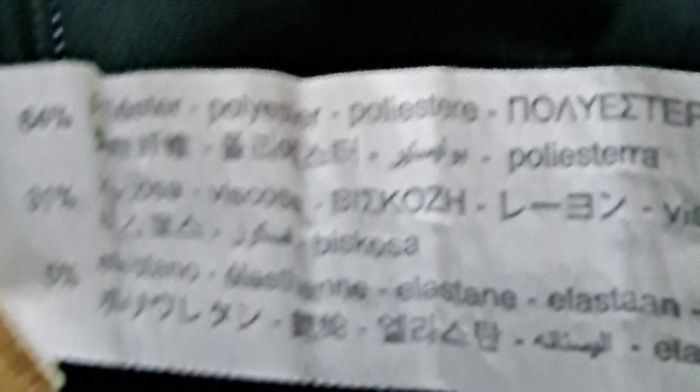 64% poliéster - polyester - poliestere - ΠΟΛΥΕΣΤΕΡ
폴리에스터 - بوليستر - poliesterra
31% viscosa - viscose - ΒΙΣΚΟΖΗ - レーヨン - vis
비스코스 - فيسكوز - biskosa
5% elastano - élasthanne - elastane - elastaan -
ポリウレタン - 氨纶 - 엘라스탄 - الاستان - ela